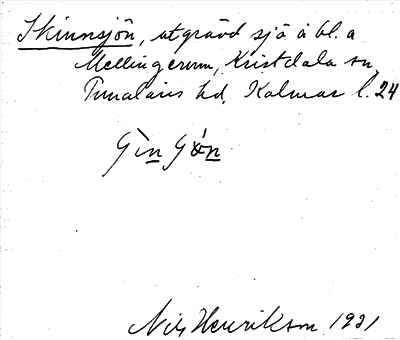 Skinnsjön, utgrävd sjö å bl. a
Mellingerum, Kristdala sn,
Tunaläns hd, Kalmar l. 24
Nils Henrikson 1931